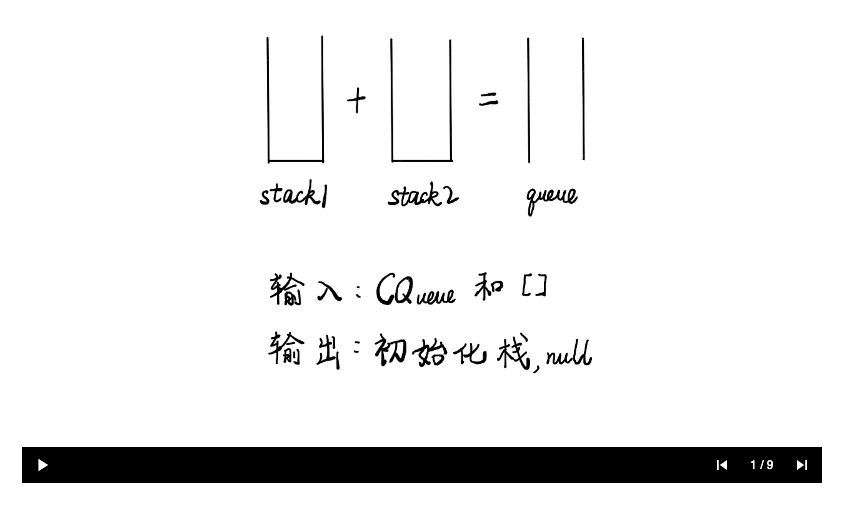 + =
stack1 stack2 queue
输入：CQueue 和 []
输出：初始化栈, null
1 / 9